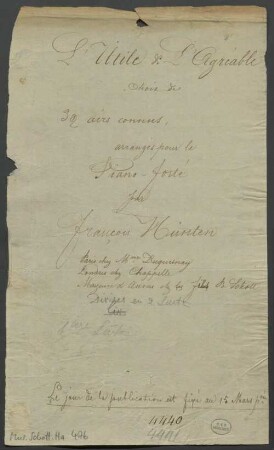 L'Utile & L'Agréable
choix de
32 airs connus,
arrangés pour le
Piano-forté
par
françois Hünten
Paris chez Mme
Londres chez Chappelle
Mayence et Anvers chez les fils de B. Schott
Divisés en 2 Suites
Suite
Le jour de la publication est fixé au 15 Mars
4440
4441
Mus. Schott. Ha 476